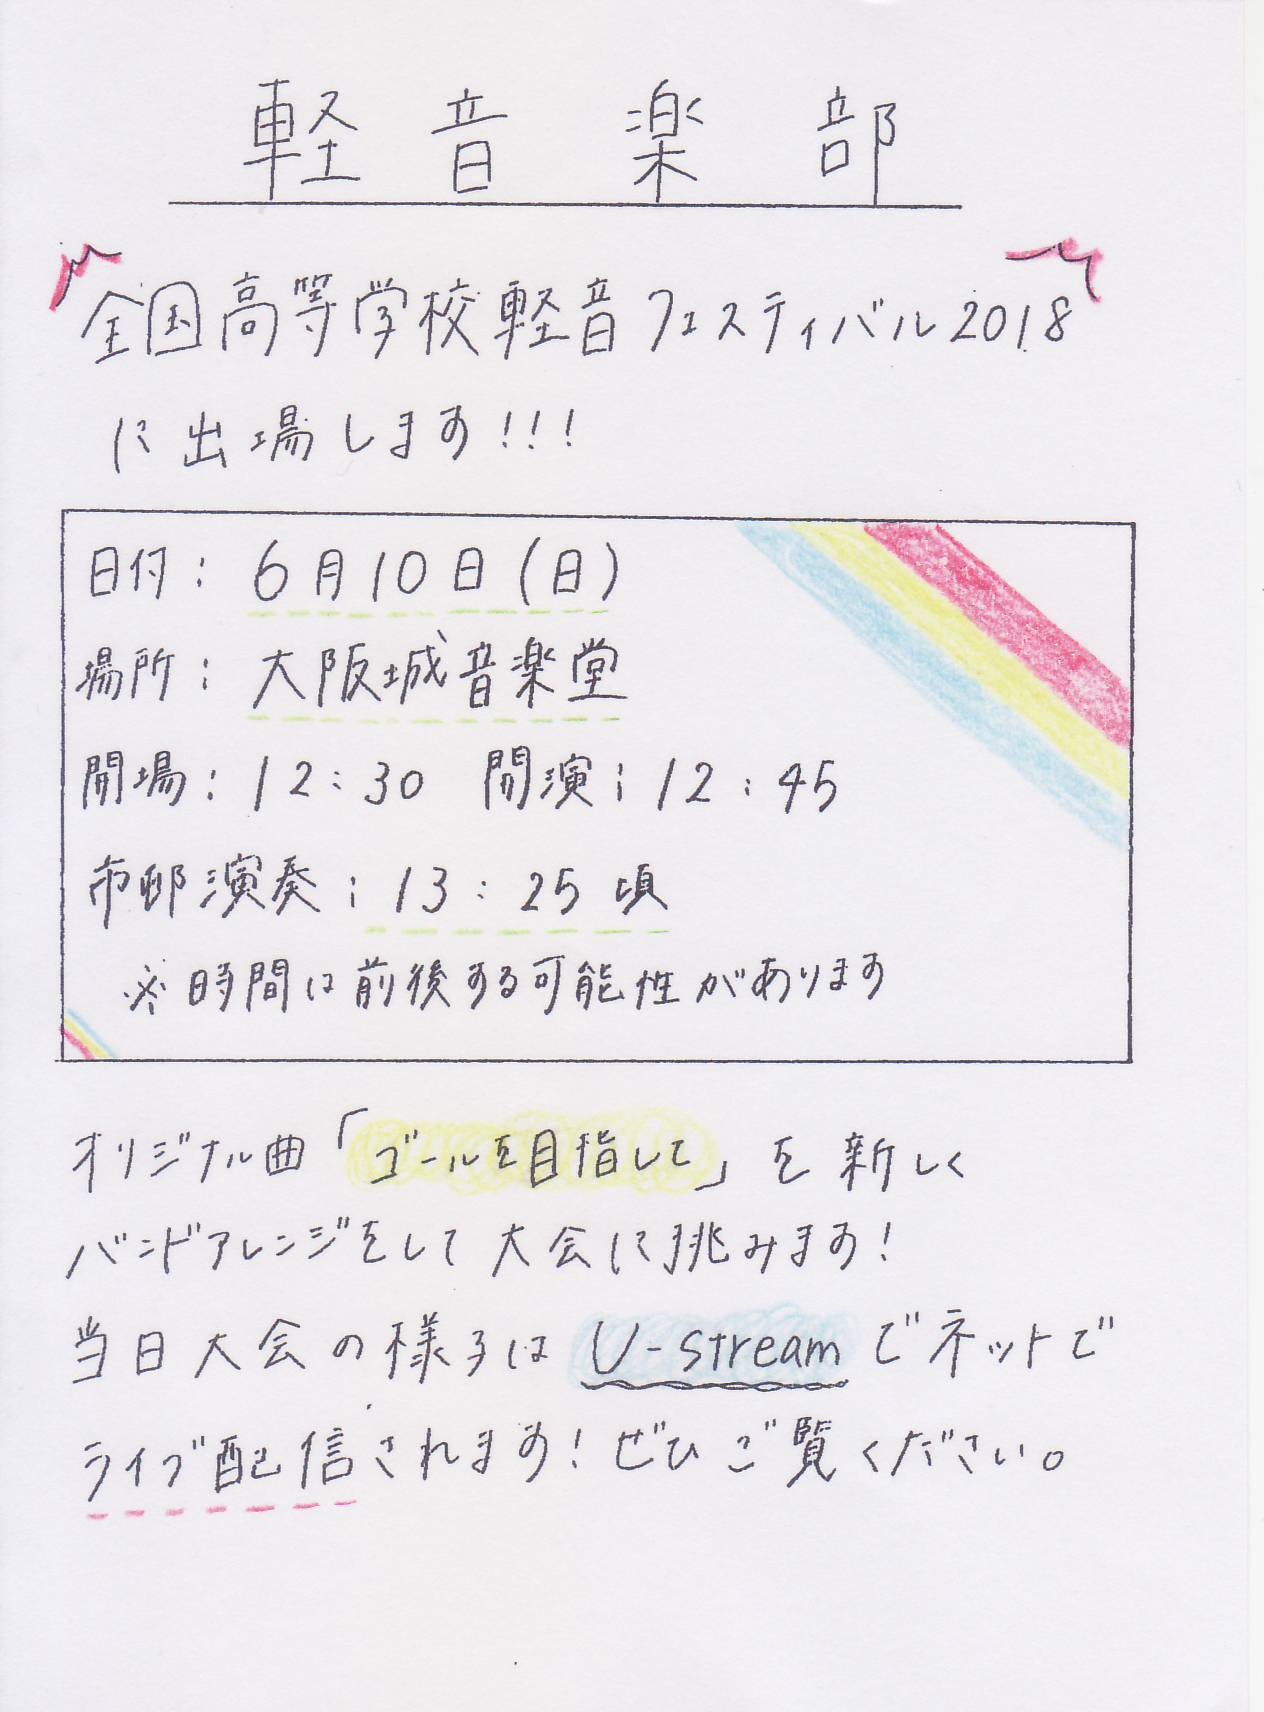 軽音楽部
全国高等学校軽音フェスティバル2018
に出場します!!!
日付: 6月10日(日)
場所: 大阪城音楽堂
開場: 12:30 開演: 12:45
市邨演奏: 13:25 頃
※時間は前後する可能性があります
オリジナル曲「ゴールを目指して」を新しく
バンドアレンジをして大会に挑みます!
当日大会の様子は U-stream でネットで
ライブ配信されます! ぜひご覧ください。